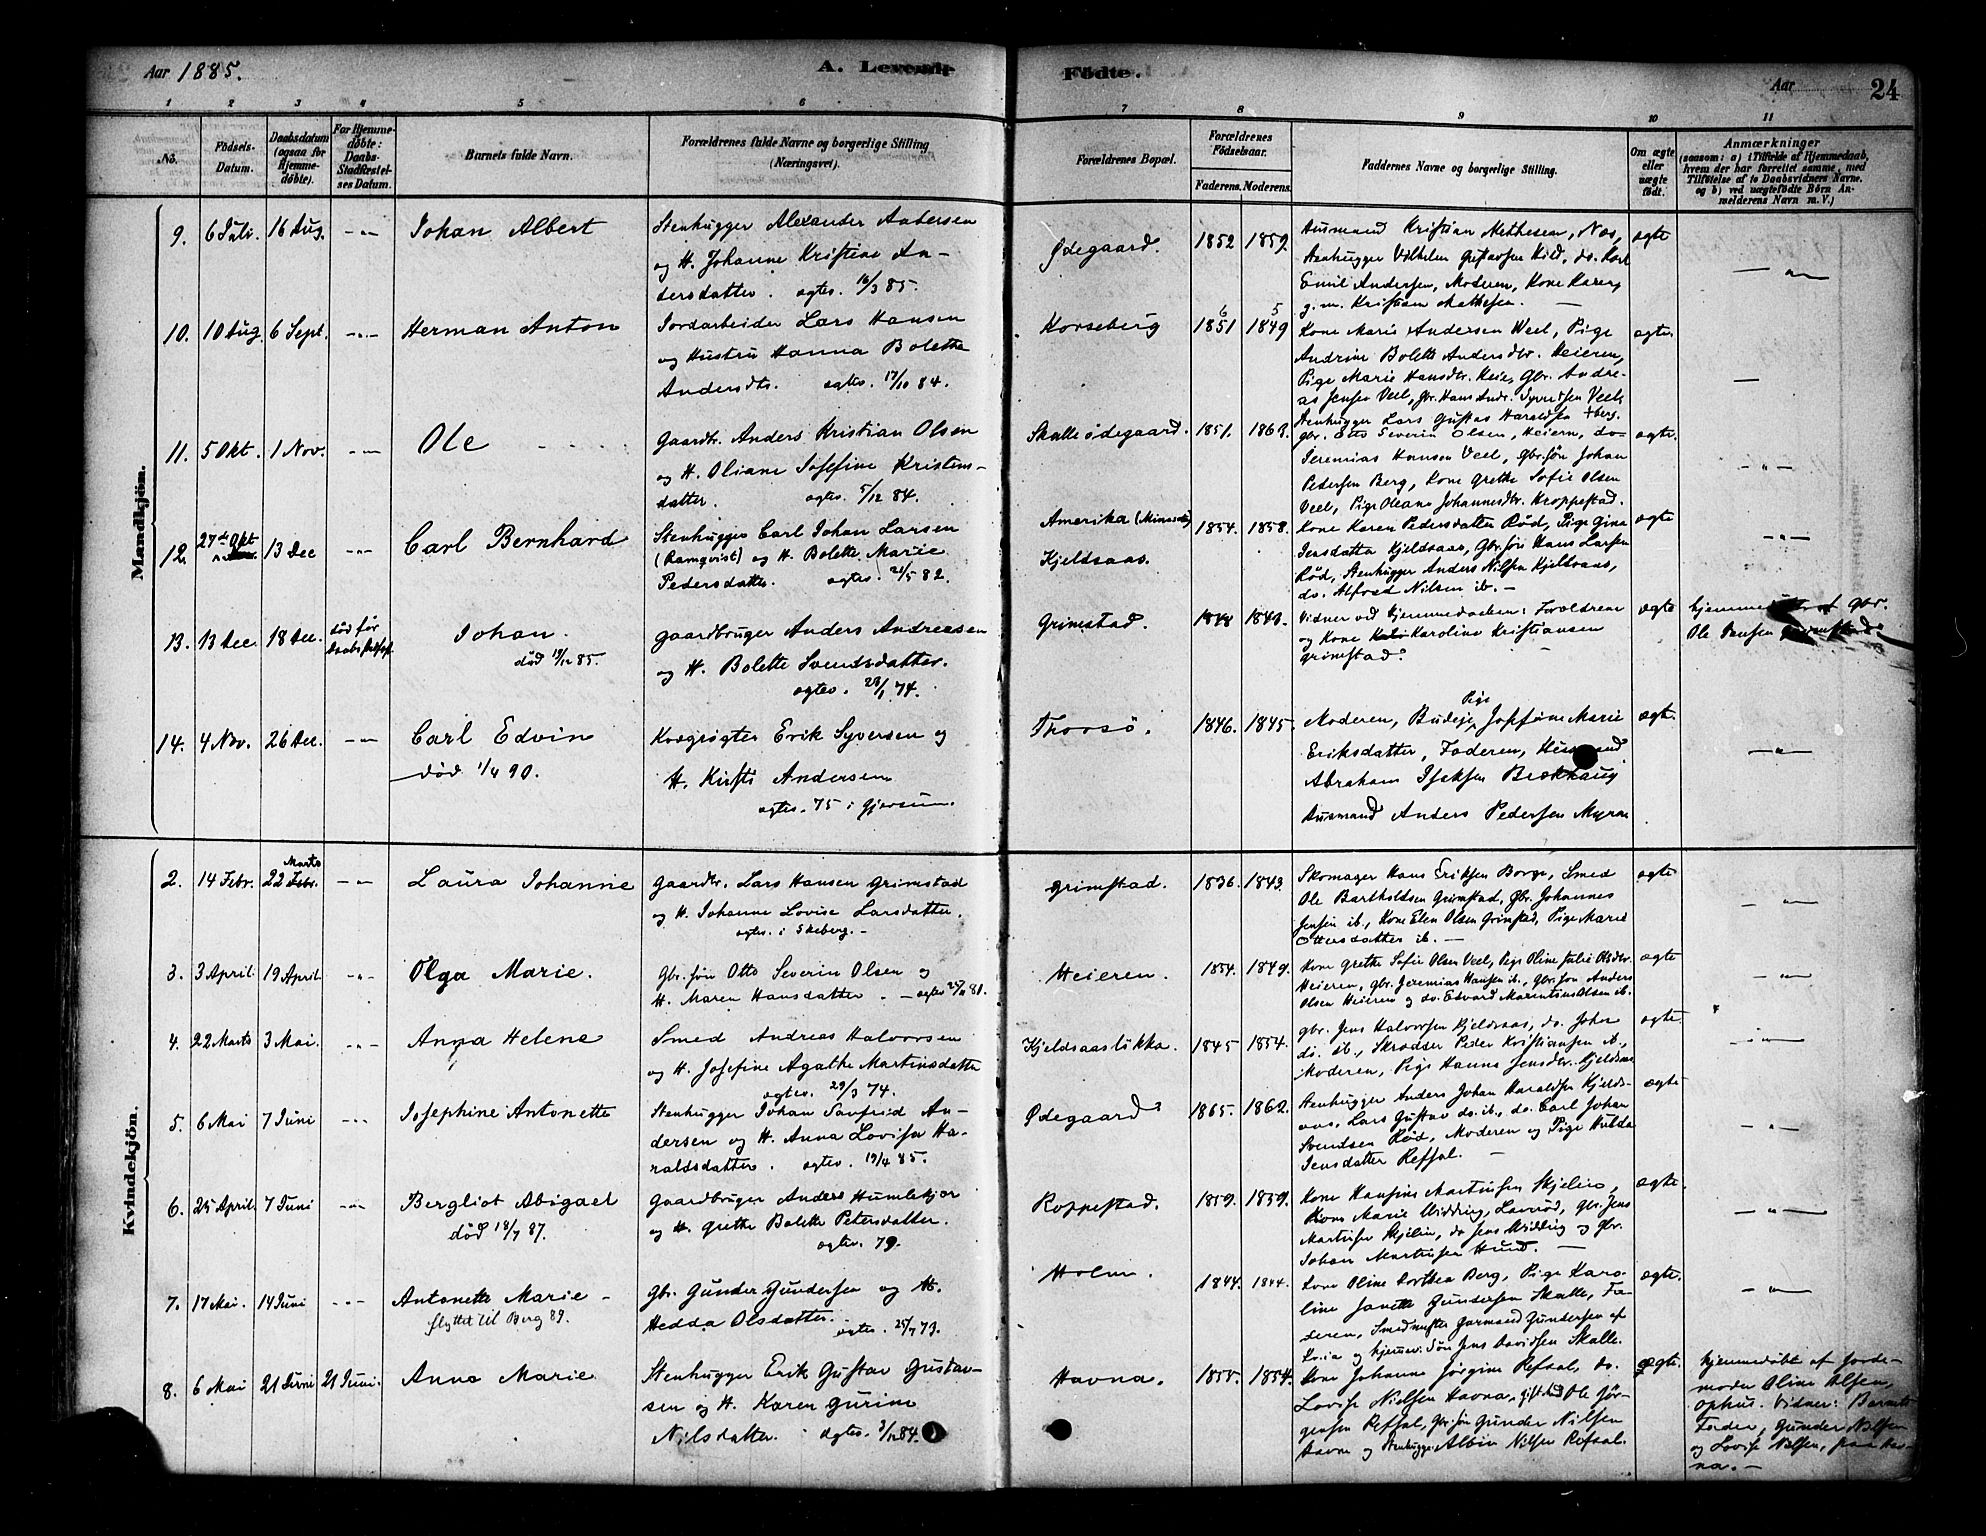 Aar 1885.
A. Levende
Födte.
Aar
24
1 2 3 4 5 6 7 8 9 10 11
No.
Födsels-Datum.
Daabsdatum (ogsaa for Hjemme-døbte).
For Hjemme-døbte: Daabs-Stadfæstel-ses Datum.
Barnets fulde Navn.
Forældrenes fulde Navne og borgerlige Stilling (Næringsvei).
Forældrenes Bopæl.
Forældrenes Fødselsaar.
Faderens. Moderens.
Faddernes Navne og borgerlige Stilling.
Om ægte eller uægte født.
Anmærkninger
(saasom: a) i Tilfælde af Hjemmedaab, hvem der har forrettet samme, med Tilføielse af to Daabsvidners Navne. og b) ved uægtefødte Børn An-melderens Navn m. V.)
Mandkjön.
9. 6 Juli. 16 Aug. -"- Johan Albert
Stenhugger Alexander Andersen
og H. Johanne Kristine An-
dersdatter. ægtev. 16/3 85.
Ødegaard. 1852 1859.
Husmand Kristian Mathesen, Næs,
Stenhugger Vilhelm Gustavsen Kild, do. Karl
Emil Andersen, Moderen, Kone Karen
g. m. Kristian Mathesen. —
ægte
—"—
10. 10 Aug 6 Sept. -"- Herman Anton
Jordarbeider Lars Hansen
og Hustru Hanna Bolette
Andersdtr. ægtev. 17/10 84.
Korseberg 1851 6 1849 5
Kone Marie Andersen Veel, Pige
Andrine Bolette Andersdtr. Heieren,
Pige Marie Hansdtr. Heie, Gbr. Andre-
as Jensen Veel, Gbr. Hans Andr. Syversen Veel,
Stenhugger Lars Gustav Haraldsen
ægte.
—
11. 5 Okt. 1 Nov. -"- Ole
Gaardbr. Anders Kristian Olsen
og H. Oliane Josefine Kristens-
datter. ægtev. 5/12 84.
Skalleødegaard. 1851. 1863.
Gbr. Otto Severin Olsen, Heiern, do-
Jeremias Hansen Veel, Gbr.søn Johan
Pedersen Berg, Kone Grethe Sofie Olsen
Veel, Pige Oleane Johannesdtr. Kroppestad.
ægte.
-"-
12. 27de Okt 13 Dec -"- Carl Bernhard
Stenhugger Carl Johan Larsen
(Ramqvist) og H. Bolette Marie
Pedersdatter. ægtev. 21/5 82.
Amerika (Minesota)
Kjeldsaas.
1854. 1858.
Kone Karen Pedersdatter Rød, Pige Gine
Jensdatter Kjeldsaas, Gbr.søn Hans Larsen
Rød, Stenhugger Anders Nilsen Kjeldsaas,
do. Alfred Nilsen ib. —
ægte
-"-
13. 13 Dec 18 Dec. død før
Johan.
død 19/12 85.
Gaardbruger Anders Andreasen
og H. Bolette Svendsdatter.
ægtev. 28/1 74.
Grimstad. 1848 1849.
Vidner ved Hjemmedaaben: Forældrene
og Kone Karoline Kristiansen
Grimstad.
ægte
Hjemmedøbt af Gbr.
Ole Jensen Grimstad.
14. 4 Nov. 26 Dec. -"- Carl Edvin
død 1/4 90.
Kvægrøgter Erik Syversen og
H. Kirsti Andersen
ægtev. 75 i Gjersum.
Thorsø. 1846. 1845.
Moderen, Budeje Pige Josefine Marie
Eriksdatter, Faderen, Husmand
Abraham Isaksen Brækhaug
Husmand Anders Pedersen Myrer
ægt.
—"—
Kvindekjön.
2. 14 Febr. 22 Febr. Marts -"- Laura Johanne
Gaardbr. Lars Hansen Grimstad
og H. Johanne Lovise Larsdatter.
ægtev. i Skeberg. -
Grimstad. 1836. 1843.
Skomager Hans Eriksen Borge, Smed
Ole Bartholdsen Grimstad, Gbr. Johannes
Jensen ib., Kone Elen Olsen Grimstad, Pige Marie
Ottersdatter ib. —
ægte
-"-
3. 3 April. 19 April -"- Olga Marie.
Gbr.søn Otto Severin Olsen og
H. Maren Hansdatter. - ægtev. 80.
Heieren. 1854. 1849.
Kone Grethe Sofie Olsen Veel, Pige Oline Julie Olsdtr.
Heieren, Gbr. Jeremias Hansen ib., Gbr.søn Anders
Olsen Heieren og do. Edvard Marentius Olsen ib.
ægte
-"-
4. 22 Marts 3 Mai. -"- Anna Helene
Smed Andreas Halvorsen
og H. Josefine Agathe Martinsdatter
ægtev. 29/3 74.
Kjeldsaasløkka. 1845 1854.
Gbr. Jens Halvorsen Kjeldsaas, do. Johan
do. ib., Skrædder Peder Kristiansen ib.,
Moderen, Pige Hanna Jensdtr. Kjeldsaas
ægte
-"-
5. 6 Mai 7 Juni -"- Josephine Antonette
Stenhugger Johan Sanfrid An-
dersen og H. Anna Lovise Ha-
raldsdatter. ægtev. 19/4 85.
Ødegaard 1865. 1862.
Stenhugger Anders Johan Haraldsen Kjelds-
aas, Lars Gustav do. ib., do. Carl Johan
Svendsen Rød, Moderen og Pige Hulda
Jensdatter Refsal. —
ægte
-"-
6. 25 April. 7 Juni -"- Bergliot Abigael
død 18/7 87.
Gaardbruger Anders Humlekjær
og H. Grethe Bolette Petersdatter.
ægtev. 79.
Roppestad. 1859. 1859.
Kone Hansine Martinsen Skjelin,
Kone Marie Midding, Lavrød, Gbr. Jens
Martinsen Skjelin, do Jens Midding og Gbr.
Johan Martinsen Hund. —
ægte.
-"-
7. 17 Mai. 14 Juni -"- Antonette Marie -
flyttet til Berg 89.
Gbr. Gunder Gundersen og H.
Hedda Olsdatter.
ægtev. 25/7 73.
Holm. 1844. 1844.
Kone Oline Dorthea Berg, Pige Karo-
line Janette Gundersen Skalle, Fa-
deren, Smedmester Gormand Gundersen af
Kr.ia og hjemmev. Søn Jens Davidsen Skalle.
ægte.
-"-
8. 6 Mai 21 Juni 21 Juni. Anna Marie
Stenhugger Erik Gustav Gustav-
sen og H. Karen Gurine
Nilsdatter. ægtev. 3/12 84.
Havna. 1855. 1854.
Kone Johanne Jørgine Refsal, do.
Lovise Nielsen Havna, gift med Ole Jør-
gensen Refsal, Gbr.søn Gunder Nilsen
Havne og Stenhugger Albin Nilsen Refsal.
ægte.
Hjemmedøbt af Jorde-
moder Oline Olsen,
Ophus. Vidner: Barnets
Fader, Gunder Nilsen
og Lovise Nilsen, paa Hav-
na. -